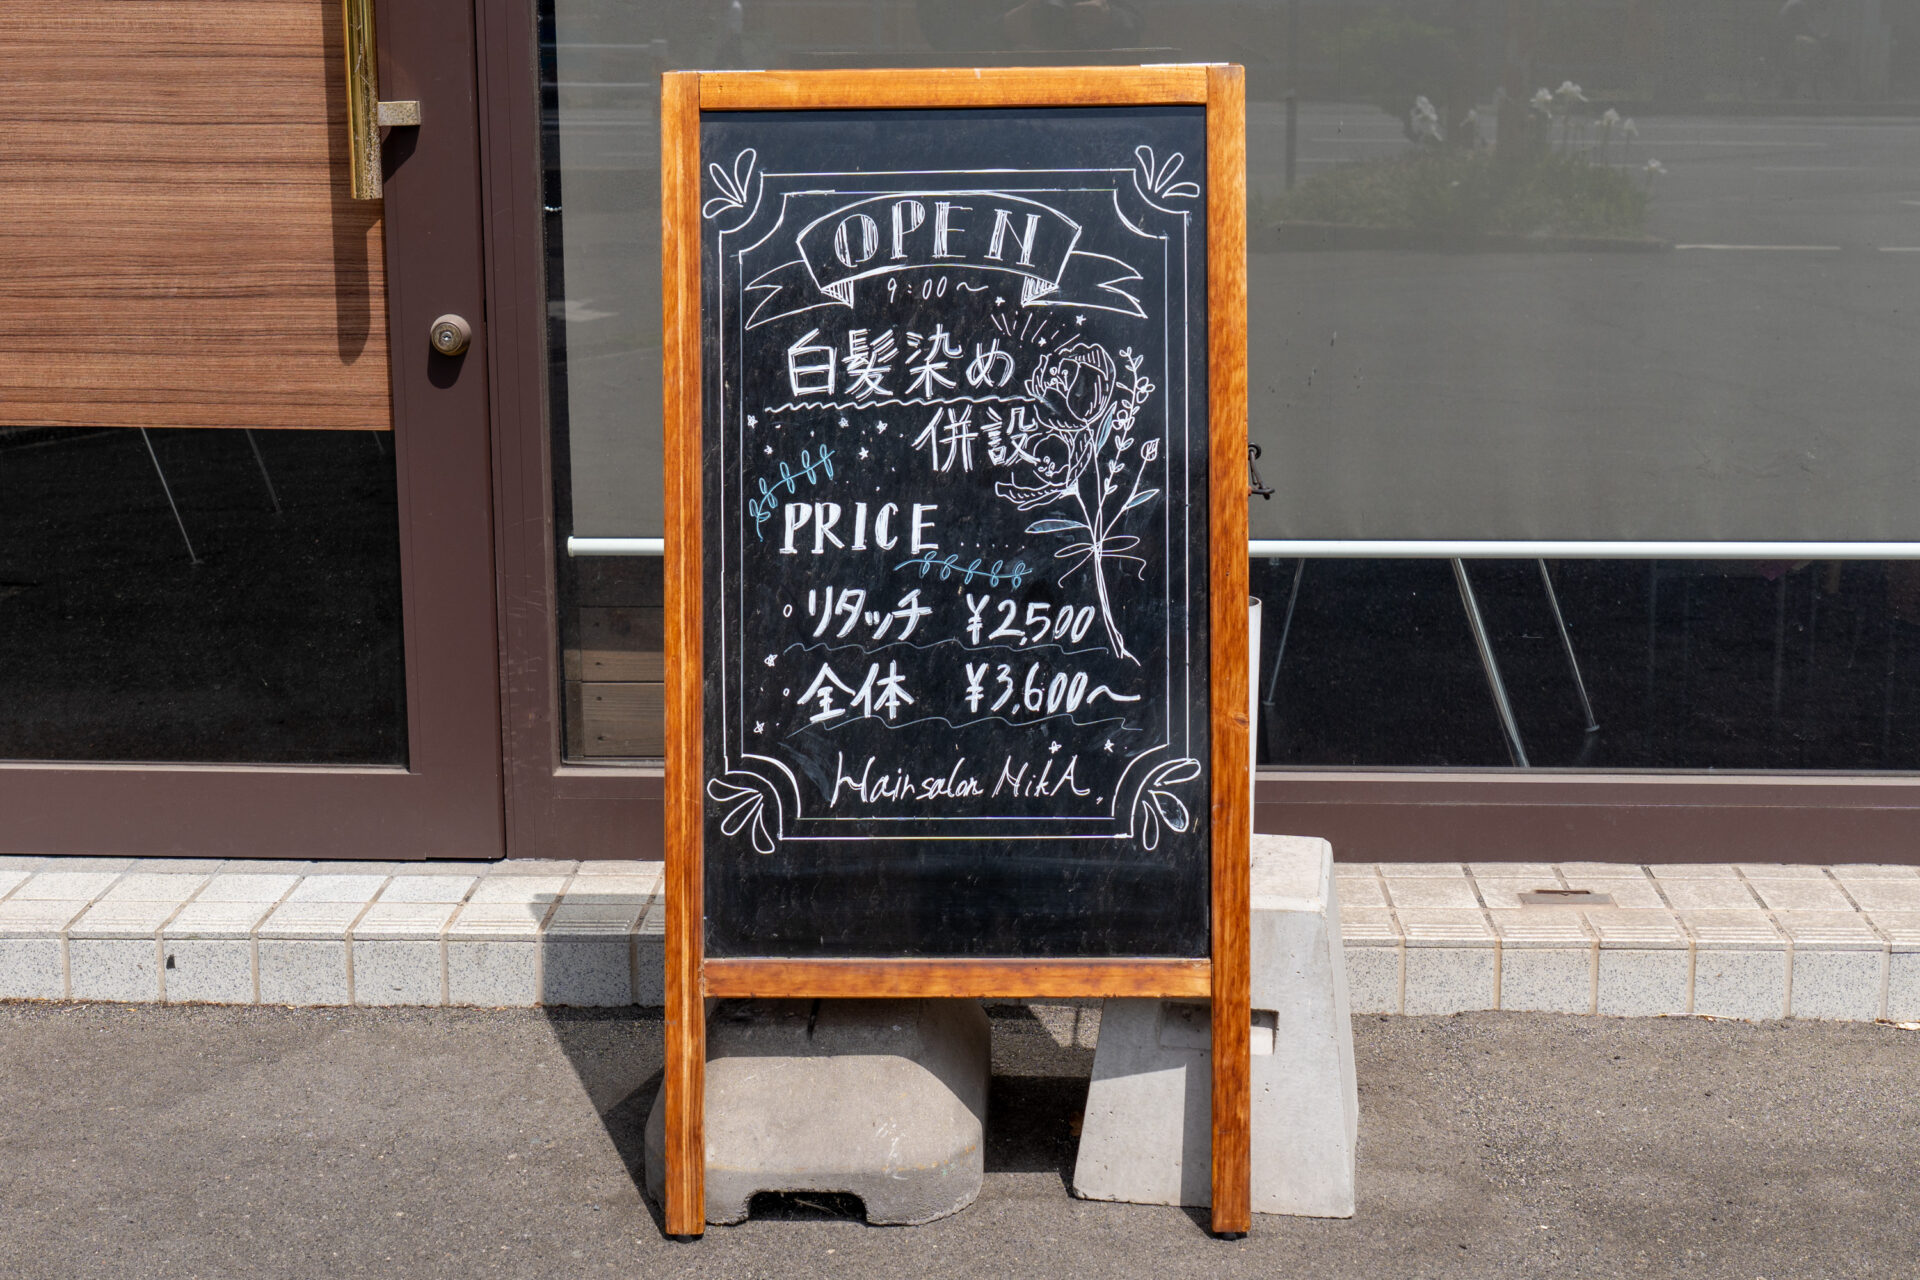 OPEN
9:00～
白髪染め
併設
PRICE .....
。リタッチ ¥2,500
。全体 ¥3,600～
Hair salon NikA